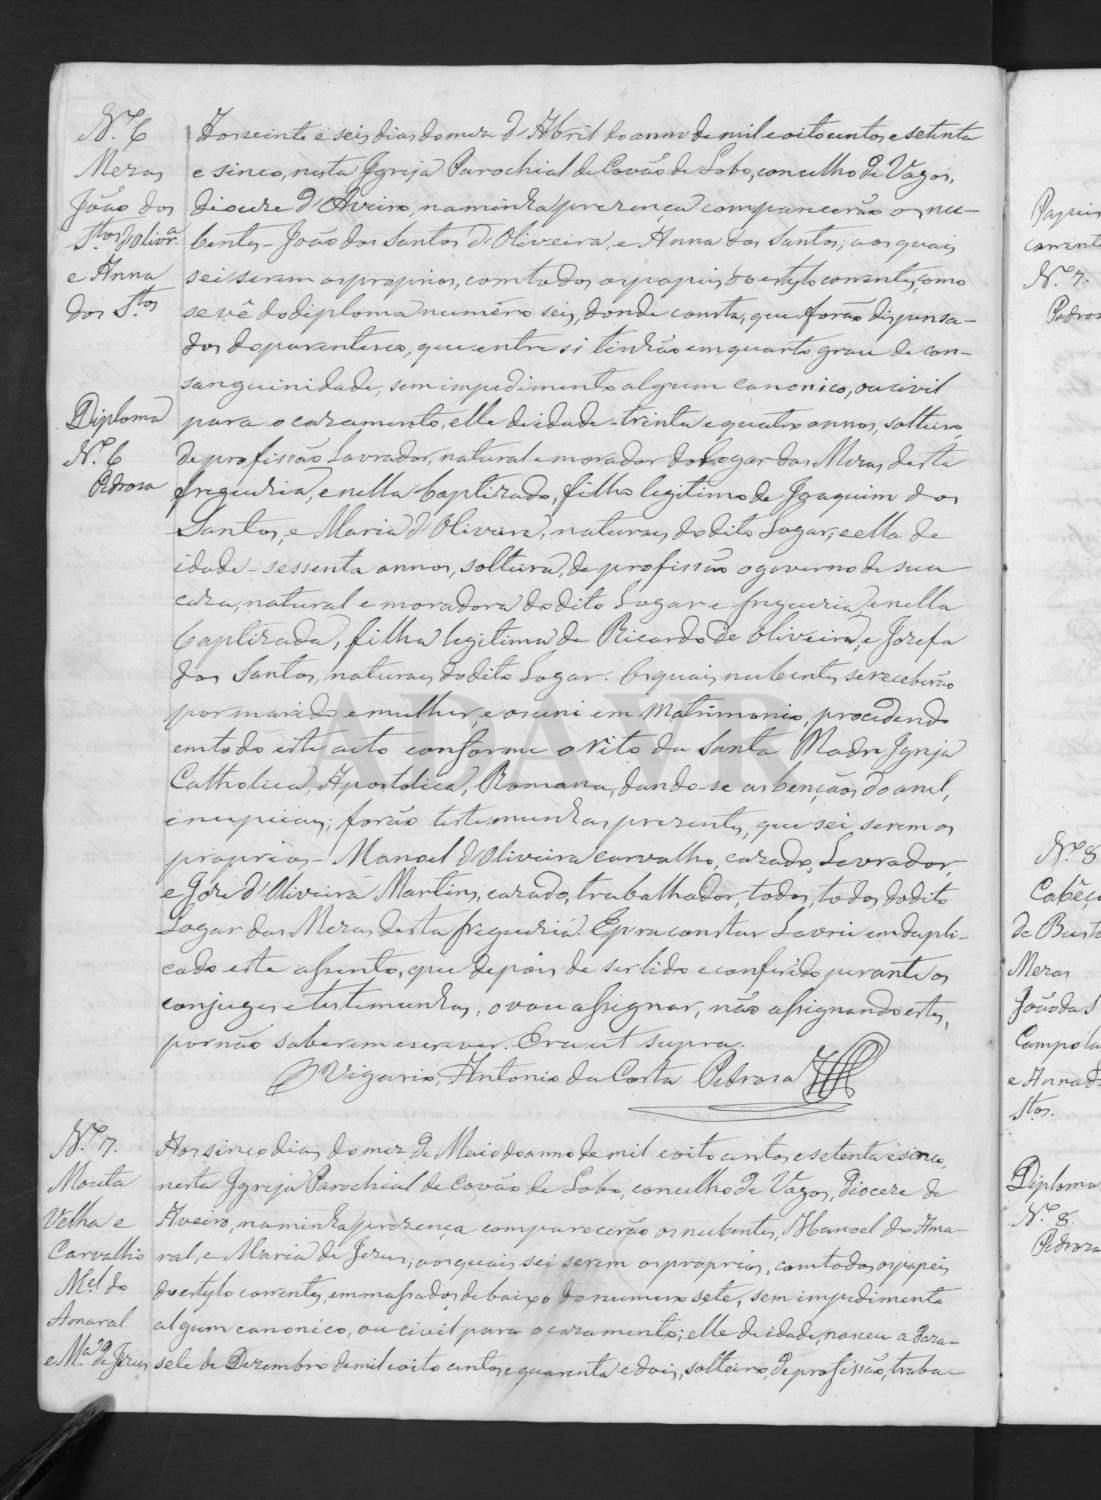 N.º 6
Mezas
João dos
S.tos d'Olivr.ª
e Anna
dos S.tos
Diploma
N.º 6
Pedroza
Aos vinte e seis dias do mez d'Abril do anno de mil e oito centos e setenta
e sinco, nesta Igreja Parochial de Covão de Lobo, concelho de Vagos,
Dioceze d'Aveiro, na minha prezença comparecerão os nu-
bentes - João dos Santos d'Oliveira, e Anna dos Santos; aos quais
sei serem os proprios, com todos os papeis do estylo correntes, como
se vê do diploma numéro seis, donde consta, que forão dispensa-
dos do parentesco, que entre si tinhão em quarto grau de con-
sanguinidade, sem impedimento algum canonico, ou civil
para o cazamento, elle de idade - trinta e quatro annos, solteiro,
de profissão Lavrador, natural e morador do Logar das Mezas desta
freguezia, e nella baptizado, filho legitimo de Joaquim dos
Santos, e Maria d'Oliveira, naturaes do dito Logar; e ella de
idade - sessenta annos, solteira, de profissão o governo de sua
caza, natural e moradora do dito Logar e freguezia, e nella
baptizada, filha legitima de Ricardo de Oliveira, e Jozefa
dos Santos, naturaes do dito Logar. Os quais nubentes se receberão
por marido e mulher, e os uni em Matrimonio, procedendo
em todo este acto conforme o rito da Santa Madre Igreja
Catholica, Apostolica, Romana, dando-se as bençãos do anel,
e nupciais; forão testemunhas prezentes, que sei serem os
proprios - Manoel d'Oliveira Carvalho, cazado, Lavrador,
e Joze d'Oliveira Martins, cazado, trabalhador, todos, todos do dito
Logar das Mezas desta freguezia. E p.ra constar Lavrei em dupli-
cado este assento, que depois de ser lido e conferido perante os
conjuges e testemunhas, o vou assignar, não assignando estes,
por não saberem escrever. Era ut supra.
O Vigario, Antonio da Costa Pedroza
N.º 7.
Mouta
Velha e
Carvalho
M.el do
Amaral
e M.ª de Jezus
Aos sinco dias do mez de Maio do anno de mil e oito centos e setenta e sinco,
nesta Igreja Parochial de Covão de Lobo, concelho de Vagos, Diocese de
Aveiro, na minha prezença comparecerão os nubentes, Manoel do Ama-
ral, e Maria de Jezus; aos quais sei serem os proprios, com todos os papeis
do estylo correntes, emmassados debaixo do numero sete, sem impedimento
algum canonico, ou civil para o cazamento; elle de idade, nasceu a deza-
sete de Dezembro de mil e oito centos e quarenta e dois, solteiro, de profissão, traba-
Papeis
corrente
N.º 7.
Pedroza
N.º 8
Cabêço
de Busto
Mezas
João da S
Campo la
e Anna d
S.tos.
Diploma
N.º 8.
Pedroza
ADAVR